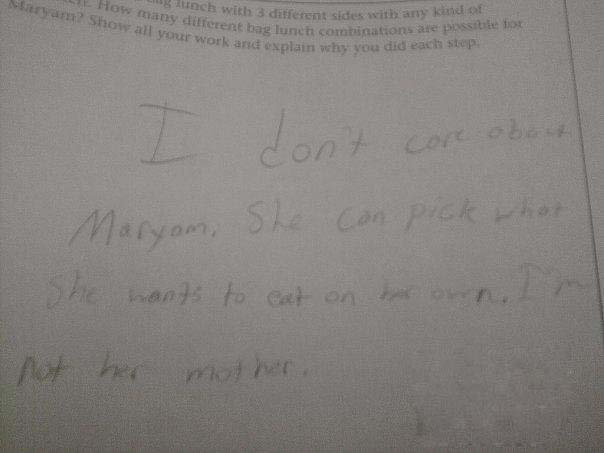 lunch with 3 different sides with any kind of
How many different bag lunch combinations are possible for
Maryam? Show all your work and explain why you did each step.
I don't care about
Maryam. She can pick what
She wants to eat on her own. I'm
not her mother.